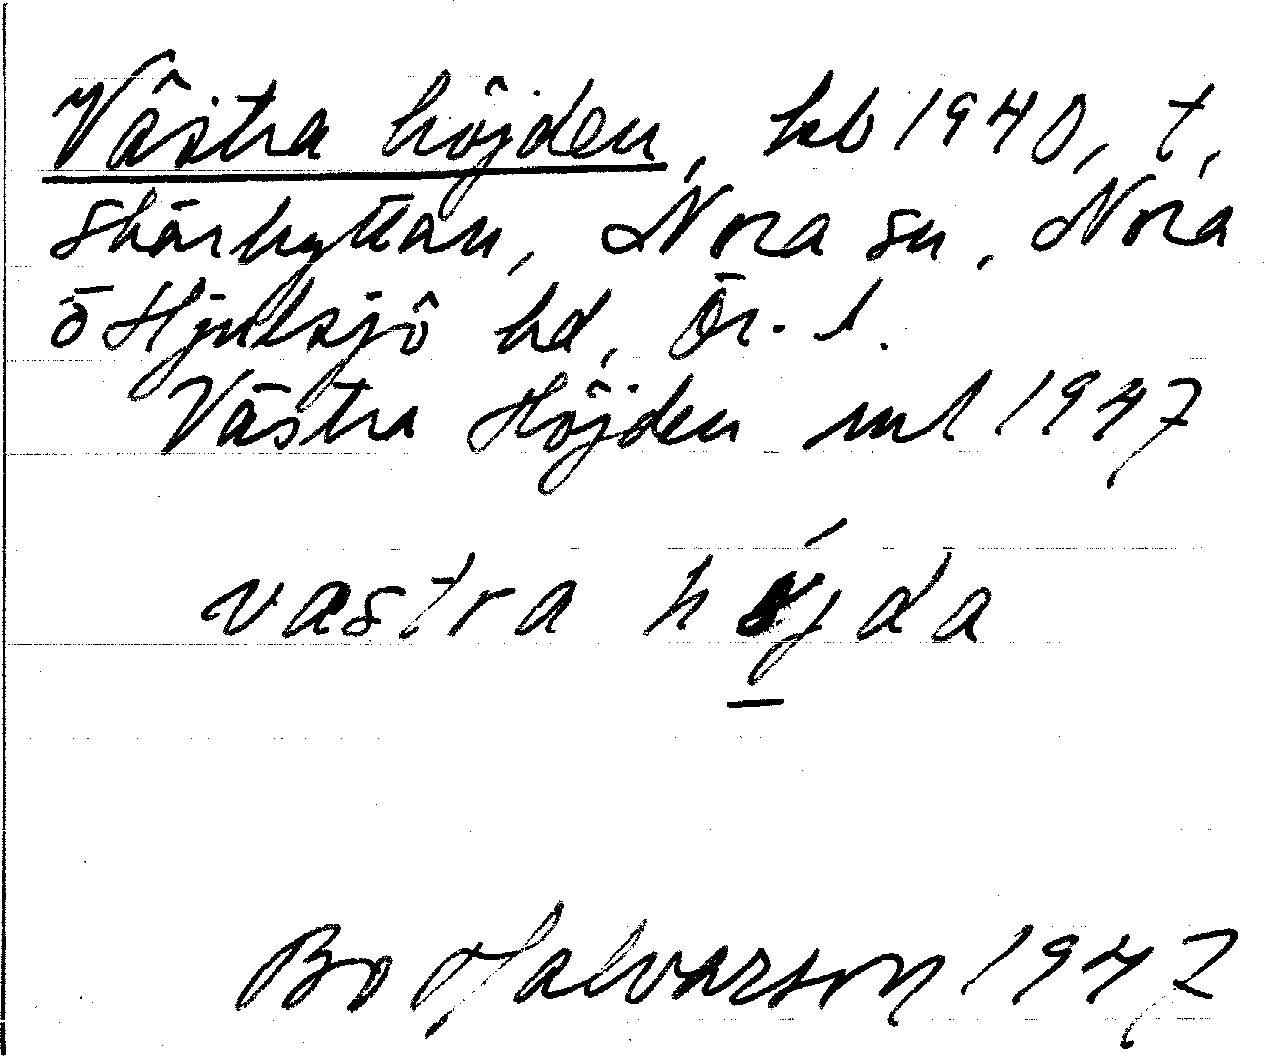 Västra höjden, kb 1940, t,
Skärhyttan, Nora sn, Nora
o Hjulsjö hd, Ör. l.
Västra Höjden ml 1947
vastra höjda
Bo Halvarson 1947